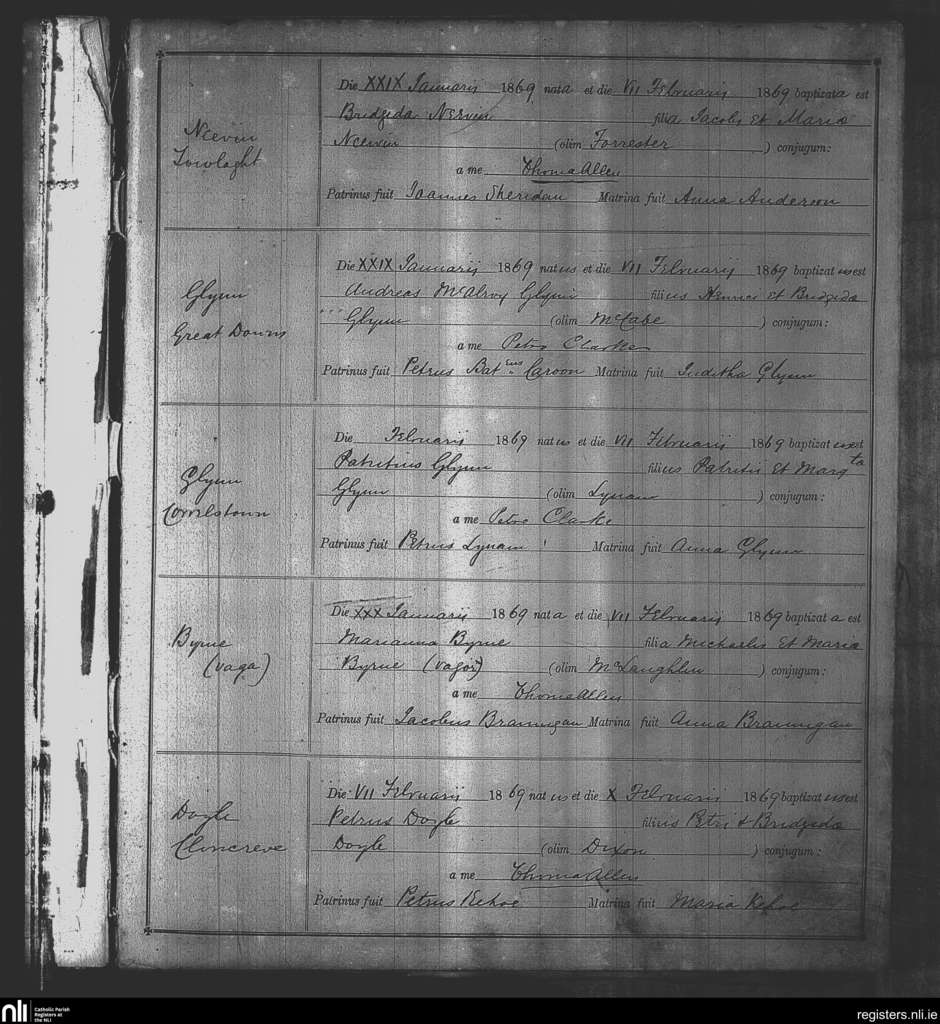 Neevin
Towlaght
Die XXIX Januarii 1869 nata et die VII Februarii 1869 baptizata est
Bridgida Nervin filia Jacobi et Mariæ
Neevin (olim Forrester ) conjugum:
a me Thoma Allen
Patrinus fuit Joannes Sheridan Matrina fuit Anna Anderson
Glynn
Great Downs
Die XXIX Januarii 1869 natus et die VII Februarii 1869 baptizatus est
Andreas McAlroy Glynn filius Henrici et Bridgidæ
Glynn (olim McCabe ) conjugum:
a me Petro Clarke
Patrinus fuit Petrus Bat Caroon Matrina fuit Juditha Glynn
Glynn
Die Februarii 1869 natus et die VII Februarii 1869 baptizatus est
Patritius Glynn filius Patritii et Marg ta
Glynn (olim Lynam ) conjugum:
a me Petro Clarke
Patrinus fuit Petrus Lynam Matrina fuit Anna Glynn
Byrne
(vaga)
Die XXX Januarii 1869 nata et die VII Februarii 1869 baptizata est
Marianna Byrne filia Michaelis et Maria
Byrne (vagor) (olim McLaughlin ) conjugum:
a me Thoma Allen
Patrinus fuit Jacobus Brannigan Matrina fuit Anna Brannigan
Doyle
Cloncreve
Die VII Februarii 1869 natus et die X Februarii 1869 baptizatus est
Petrus Doyle filius Petri & Bridgidæ
Doyle (olim Dixon ) conjugum:
a me Thoma Allen
Patrinus fuit Petrus Kehoe Matrina fuit Maria Kehoe
nli Catholic Parish
Registers at
the NLI
registers.nli.ie